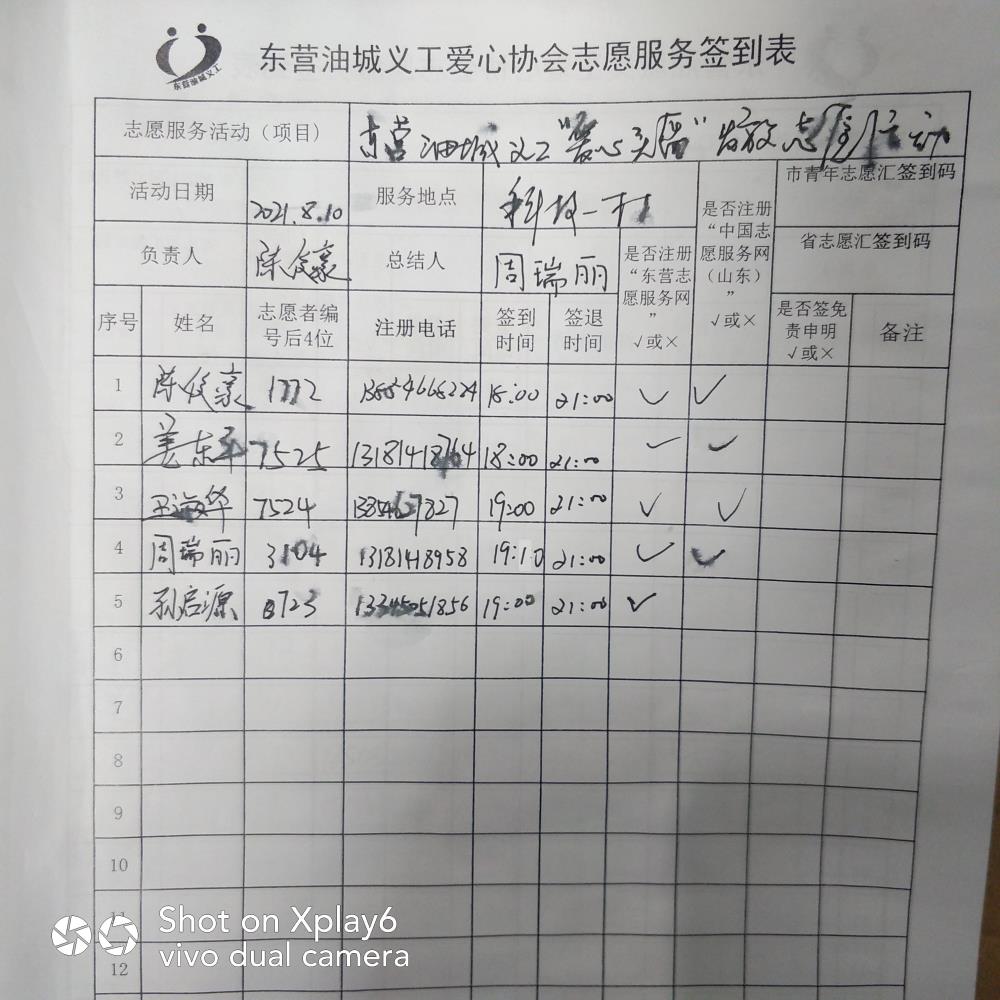 东营油城义工
东营油城义工爱心协会志愿服务签到表
志愿服务活动（项目） 东营油城义工“爱心 ”发放志愿活动
活动日期 2021.8.10 服务地点 科技一村 是否注册“东营志愿服务网” √或× 是否注册“中国志愿服务网（山东）” √或× 市青年志愿汇签到码
负责人 陈俊豪 总结人 周瑞丽 省志愿汇签到码
序号 姓名 志愿者编号后4位 注册电话 签到时间 签退时间 是否签免责申明 √或× 备注
1 陈俊豪 1772 18:00 21:00 ✓ ✓
2 姜东 7525 18:00 21:00 ✓ ✓
3 王海华 7524 19:00 21:00 ✓ ✓
4 周瑞丽 3104 13181418958 19:10 21:00 ✓ ✓
5 孙启源 0723 13345051856 19:00 21:00 ✓
6
7
8
9
10
11
12
Shot on Xplay6
vivo dual camera